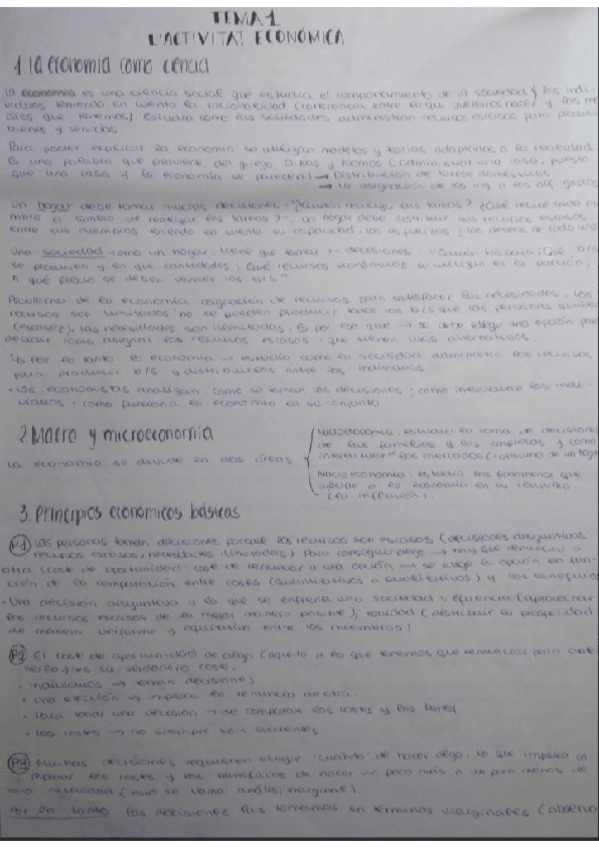 TEMA 1
L'ACTIVITAT ECONÓMICA
1. La economía como ciencia
La economía es una ciencia social que estudia el comportamiento de la sociedad y los indi-
viduos teniendo en cuenta la racionalidad (coherencia entre lo que queremos hacer y los me
dios que tenemos). Estudia como las sociedades administran recursos escasos para producir
bienes y servicios
Para poder explicar la economía se utilizan modelos y teorías adaptados a la realidad
Es una palabra que proviene del griego Oikos y Nomos (administrar una casa, puesto
que una casa y la economía se parecen) → Distribución de tareas domésticas
→ La asignación de los ing a los dif gastos
Un hogar debe tomar muchas decisiones: "¿Quién realiza las tareas? ¿Qué recibe cada mi
embro a cambio de realizar las tareas?", un hogar debe distribuir sus recursos escasos
entre sus miembros teniendo en cuenta su capacidad, los esfuerzos y los deseos de cada uno
Una sociedad como un hogar, tiene que tomar decisiones: "Quién trabaja; Qué b/s
se producen y en que cantidades; Qué recursos económicos se utilizan en la producción;
A qué precio se deben vender los b/s"
Problema de la economía: asignación de recursos para satisfacer las necesidades, los
recursos son limitados no se pueden producir todos los b/s que las personas quieren
(escasez), las necesidades son ilimitadas. Es por eso que → se debe elegir una opción para
decidir como asignar los recursos escasos que tienen usos alternativos
Por lo tanto: la economía → estudia como la sociedad administra los recursos
para producir b/s y distribuirlos entre los individuos
· Los economistas analizan: como se toman las decisiones; como interactúan los indi-
viduos; como funciona la economía en su conjunto
2. Macro y microeconomía
La economía se divide en dos áreas
Microeconomía: estudia la toma de decisiones
de las familias y las empresas y como
interactúan en los mercados (consumo de un hogar
Macroeconomía: estudia los fenómenos que
afectan a la economía en su conjunto
(ej inflación).
3. Principios económicos básicos
P1 Las personas toman decisiones porque los recursos son escasos (decisiones disyuntivas
recursos escasos, necesidades ilimitadas) Para conseguir algo → hay que renunciar a
otra (coste de oportunidad: coste de renunciar a una opción → se elige la opción en fun-
ción de la comparación entre costes (cuantitativos o cualitativos) y los beneficios
· Una decisión disyuntiva a la que se enfrenta una sociedad: eficiencia (aprovechar
los recursos escasos de la mejor manera posible); equidad (distribuir la prosperidad
de manera uniforme y equitativa entre los miembros)
P2 El coste de oportunidad de algo (aquello a lo que tenemos que renunciar para obte
nerlo) es su verdadero coste.
· Individuos → toman decisiones
· Una elección → implica la renuncia de otra
· Para tomar una decisión → se comparan los costes y los benef
· Los costes → no siempre son evidentes
P3 Muchas decisiones requieren elegir "cuánto" de hacer algo, lo que implica co
mparar los costes y los beneficios de hacer un poco más o un poco menos de
una actividad (esto se llama análisis marginal).
Por lo tanto las decisiones las tomamos en términos marginales (observa